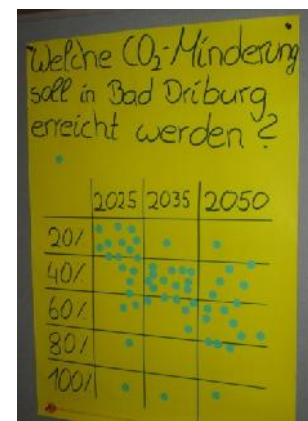 Welche CO₂-Minderung
soll in Bad Driburg
erreicht werden?
2025 2035 2050
20%
40%
60%
80%
100%